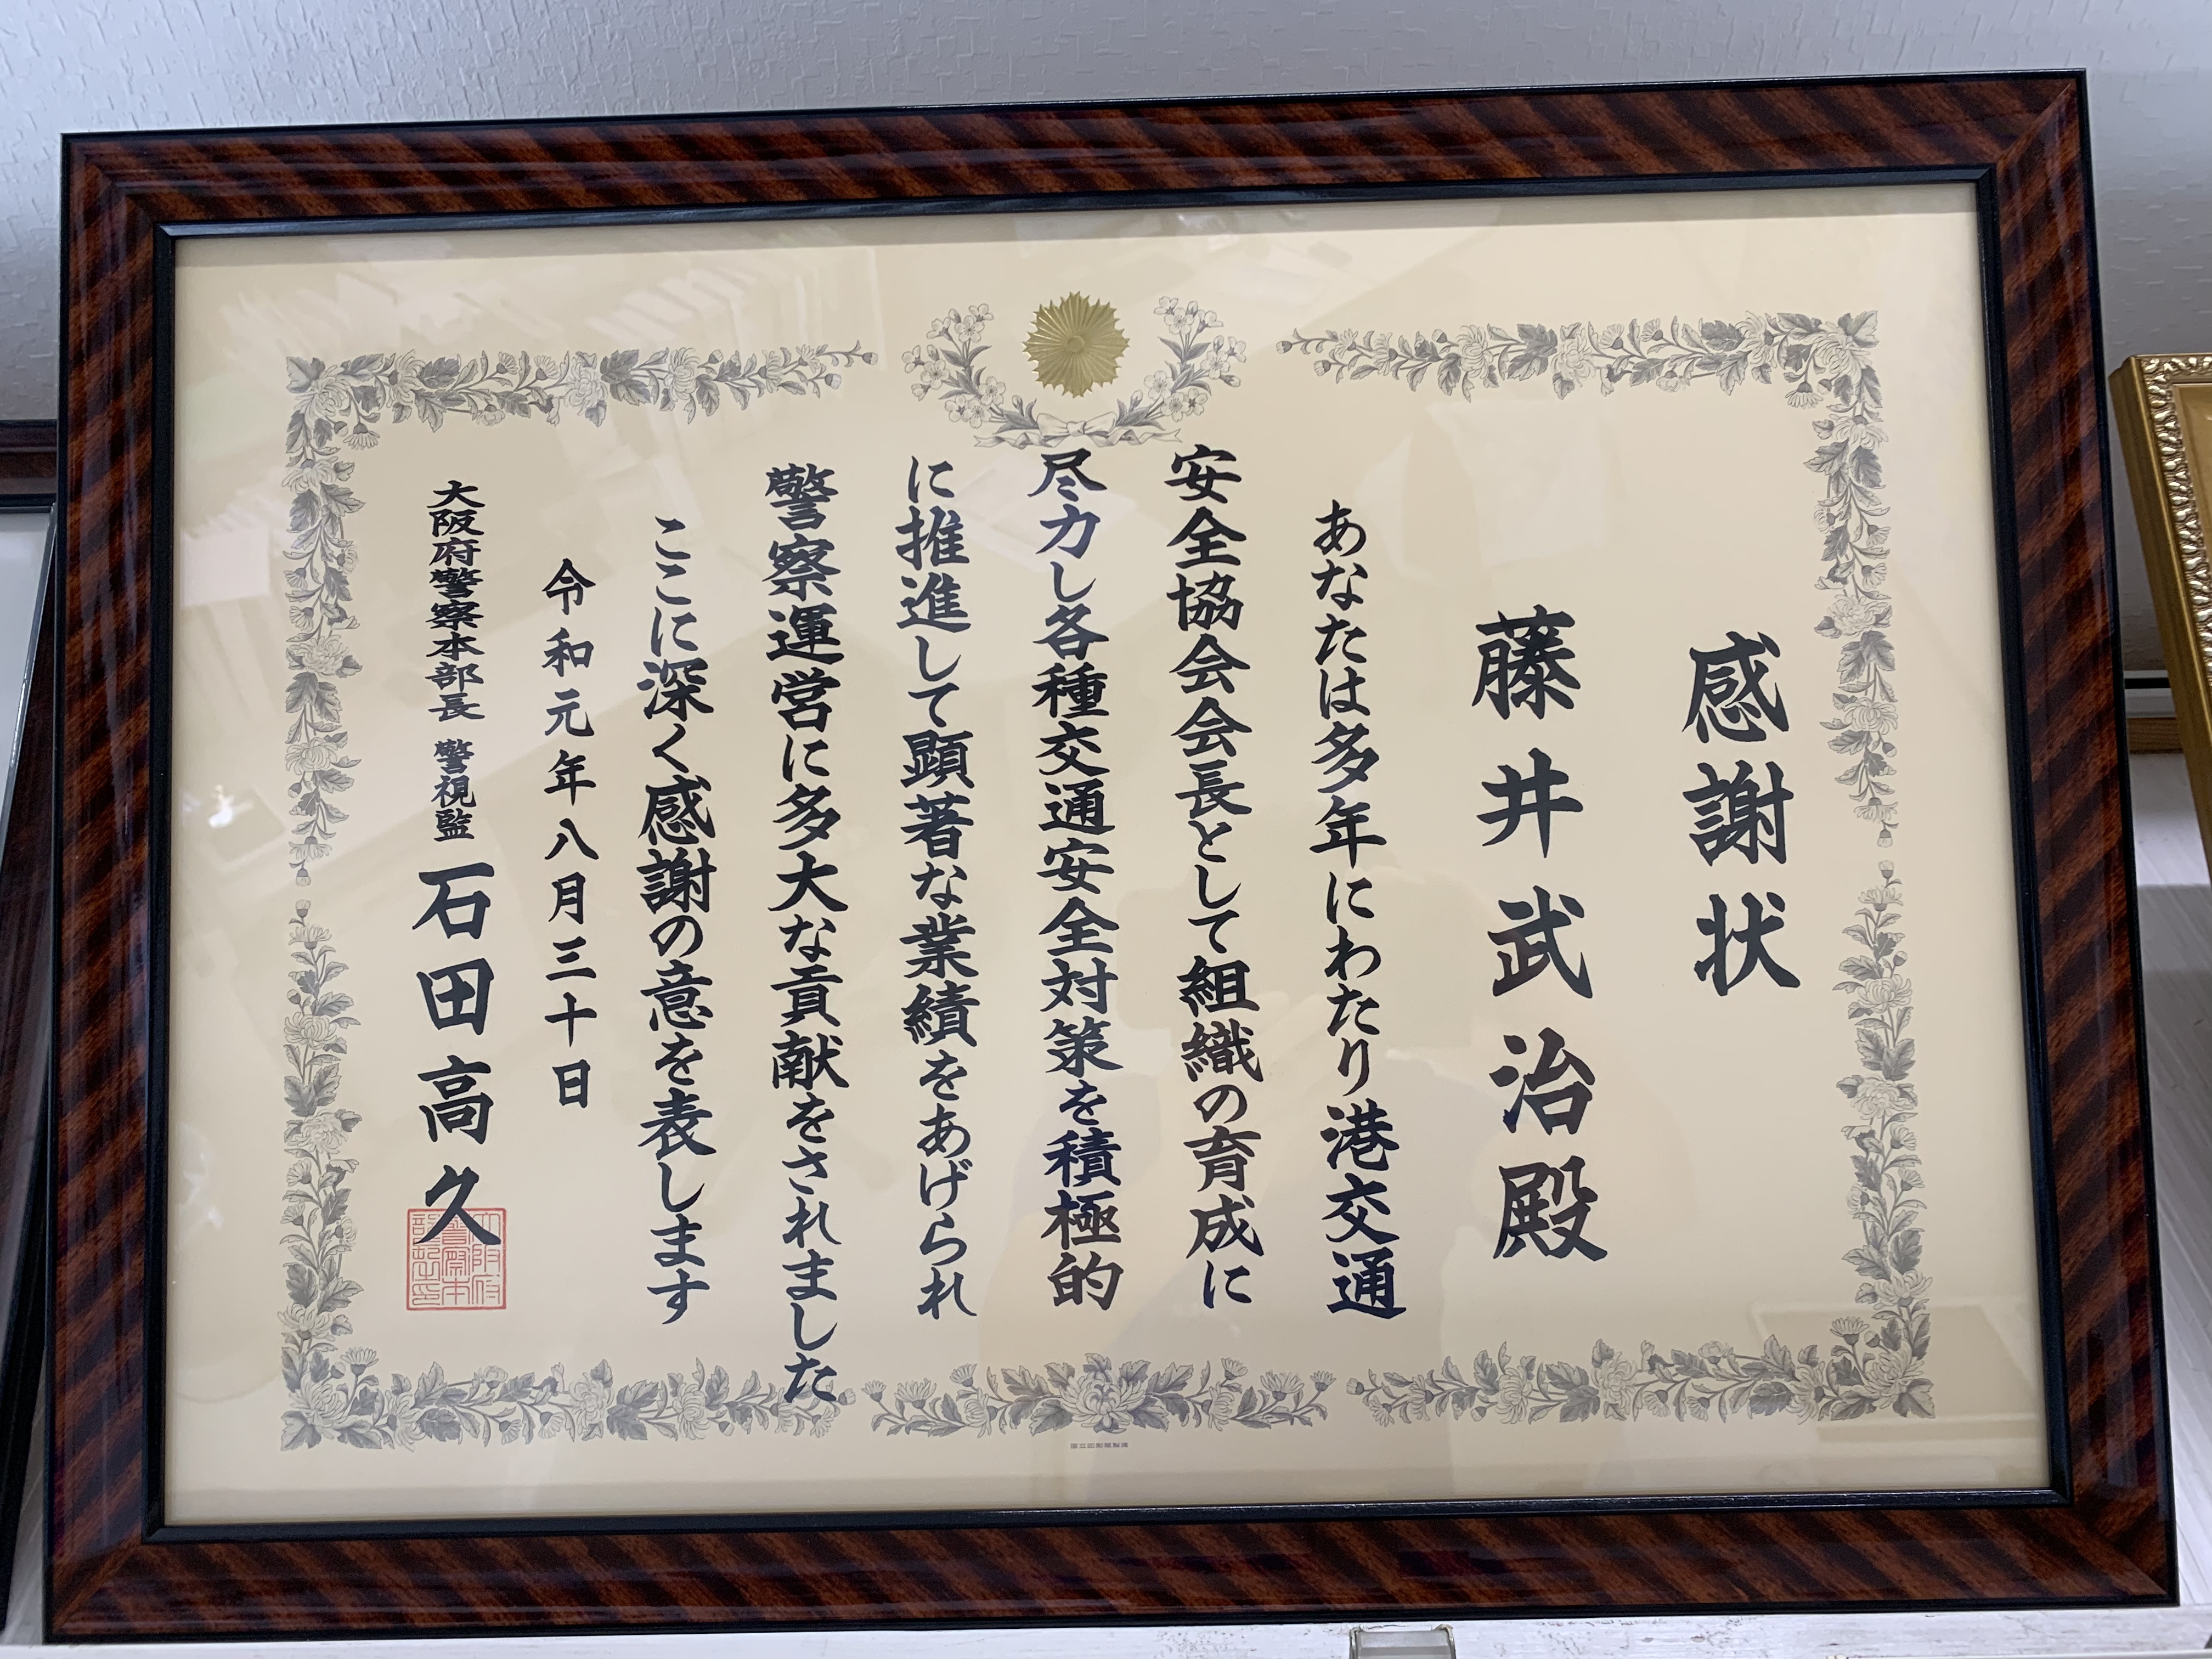 感謝状
藤井武治殿
あなたは多年にわたり港交通
安全協会会長として組織の育成に
尽力し各種交通安全対策を積極的
に推進して顕著な業績をあげられ
警察運営に多大な貢献をされました
ここに深く感謝の意を表します
令和元年八月三十日
大阪府警察本部長 警視監 石田高久
国立印刷局製造